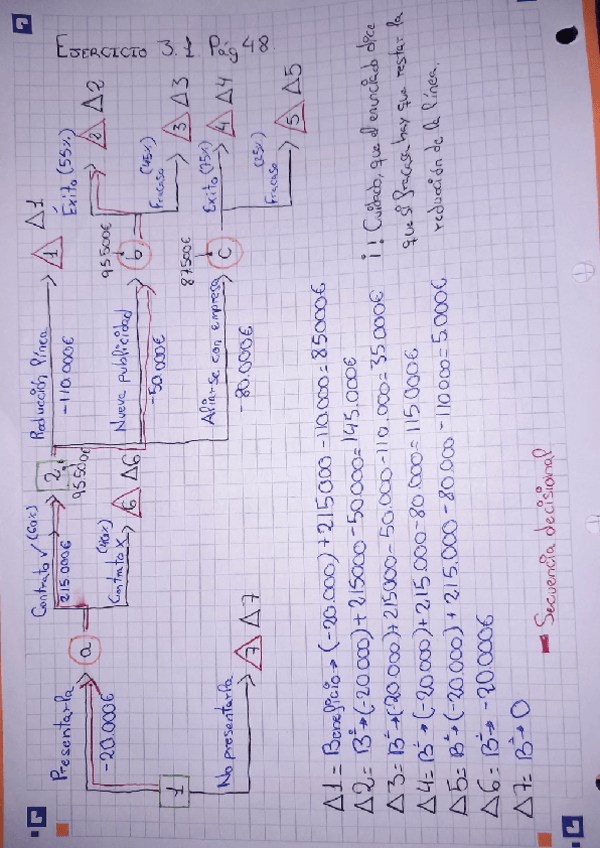 EJERCICIO 3.1 Pág 48
Presentarla
-20.000€
1
No presentarla
7 Δ7
a
Contrato ✓ (60%)
215.000€
Contrato X (40%)
6 Δ6
2
95500€
Reducción línea
-110.000€
1 Δ1
Nueva publicidad
-50.000€
95500€
b
Éxito (55%)
2 Δ2
Fracaso (45%)
3 Δ3
Aliarse con empresa
-80.000€
87500€
c
Éxito (75%)
4 Δ4
Fracaso (25%)
5 Δ5
Δ1 = Beneficio → (-20.000) + 215000 - 110.000 = 85000€
Δ2 = Bº → (-20.000) + 215000 - 50.000 = 145.000€
Δ3 = Bº → (-20.000) + 215000 - 50.000 - 110.000 = 35000€
Δ4 = Bº → (-20.000) + 215.000 - 80.000 = 115.000€
Δ5 = Bº → (-20.000) + 215.000 - 80.000 - 110000 = 5.000€
Δ6 = Bº → -20.000€
Δ7 = Bº → 0
¡! Cuidado, que el enunciado dice
que si fracasa hay que restar la
reducción de la línea.
Secuencia decisional